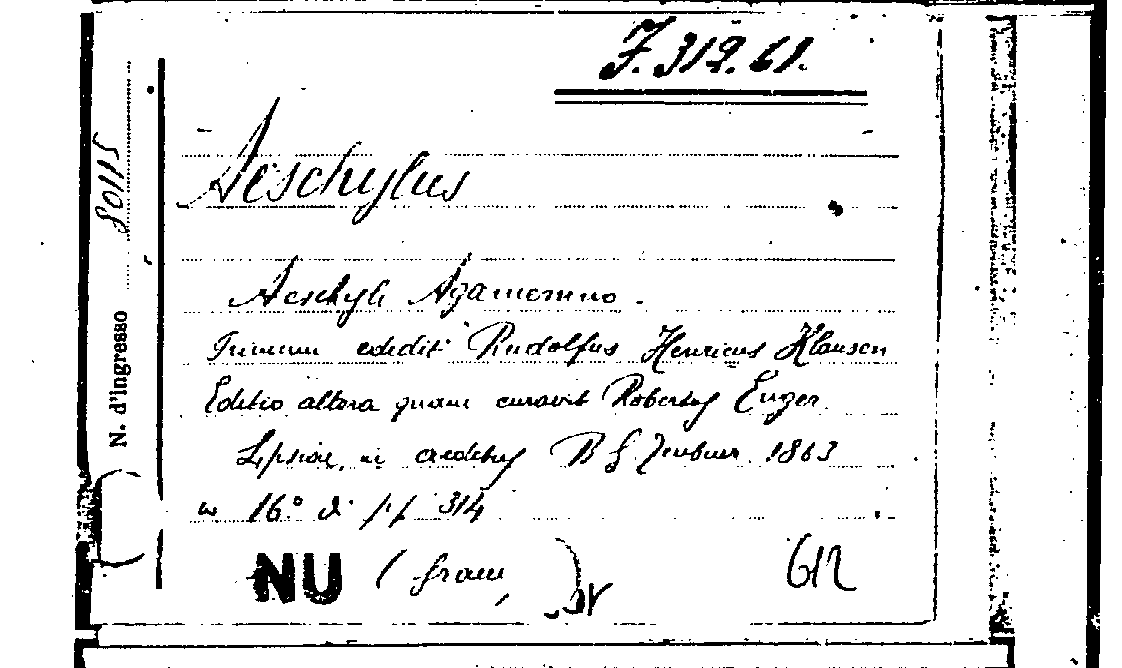 F. 312. 61.
N. d'Ingresso 80115
Aeschylus
Aeschyli Agamemno.
Primum edidit Rudolfus Henricus Klausen
Editio altera quam curavit Robertus Enger
Lipsiae, in aedibus B G Teubner 1863
in 16.° di pp 314
NU ( )
612